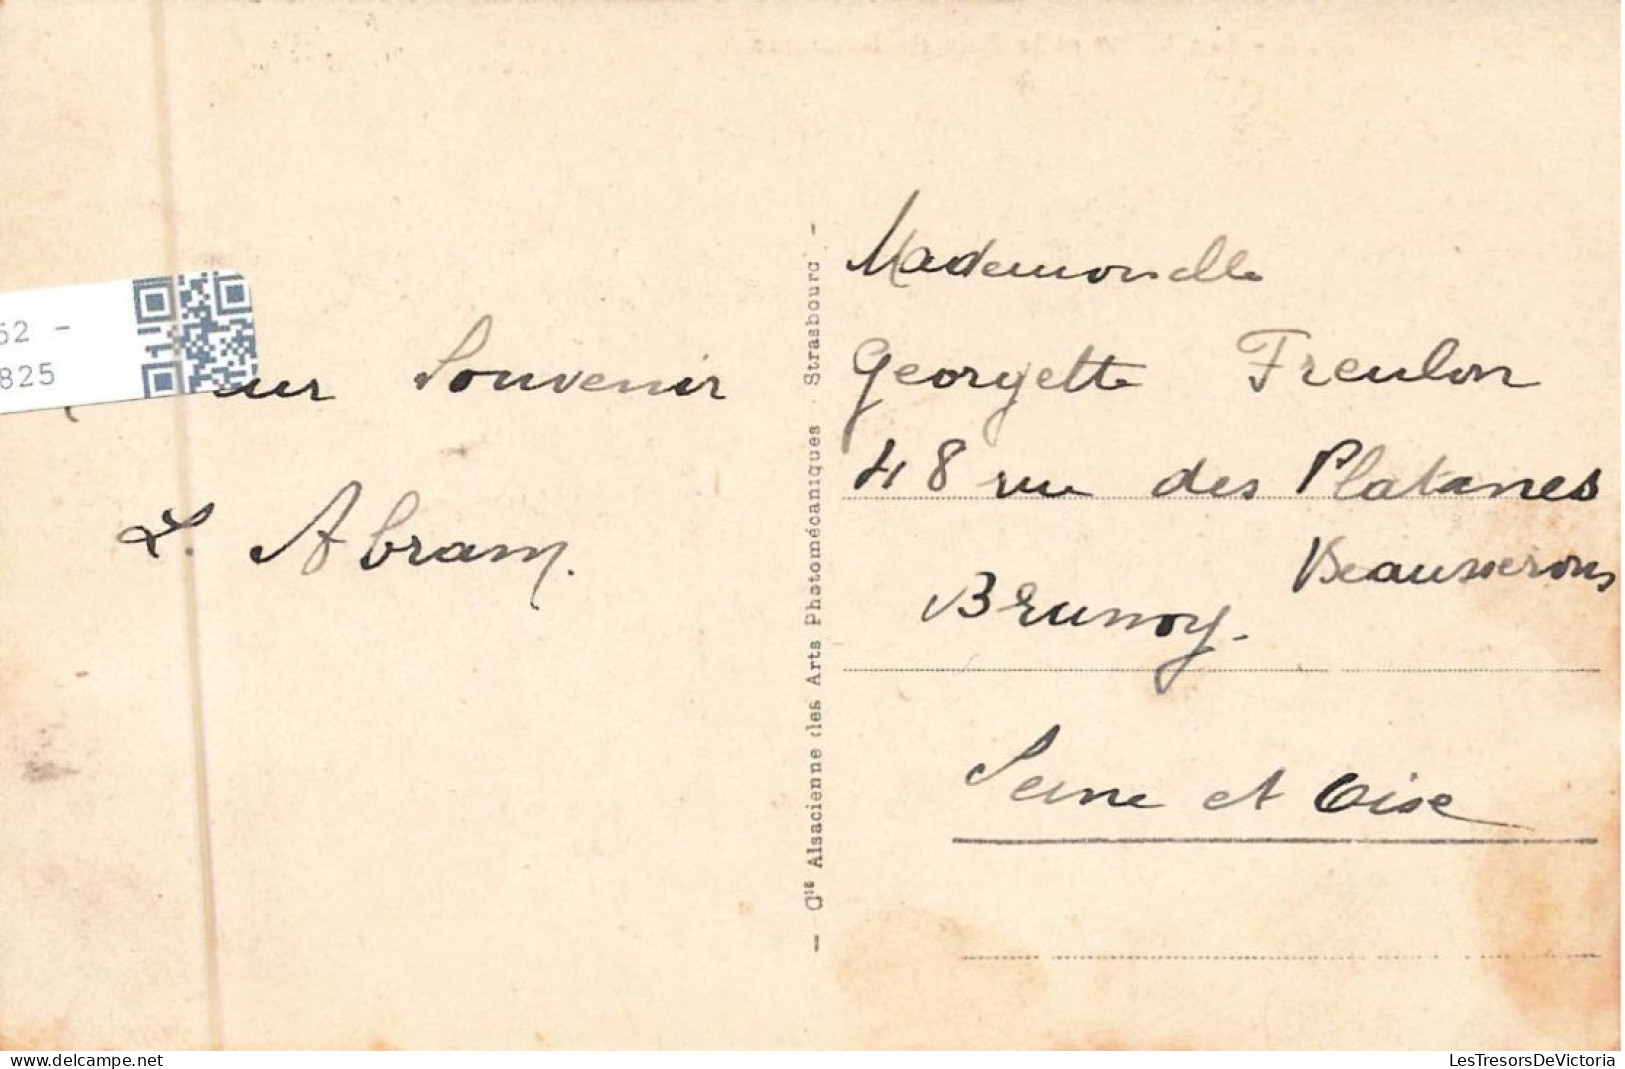 52 -
825
Souvenir
L. Abram.
— Cie Alsacienne des Arts Photomécaniques - Strasbourg -
Mademoiselle
Georgette Freulon
48 rue des Platanes
Beausserons
Brunoy.
Seine et Oise
LesTresorsDeVictoria